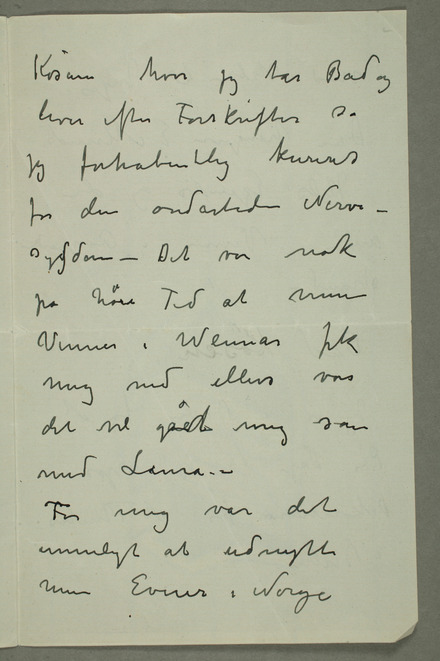 Kösen hvor jeg tar Bad og
lever efter Forskrifter så
jeg forhåbentlig kureres
for den ondartede Nerve-
sygdom – Det var nok
på høie Tid at mine
Venner i Weimar fik
mig med ellers var
det vel gået mig som
med Laura. –
For mig var det
umuligt at udnytte
mine Evner i Norge